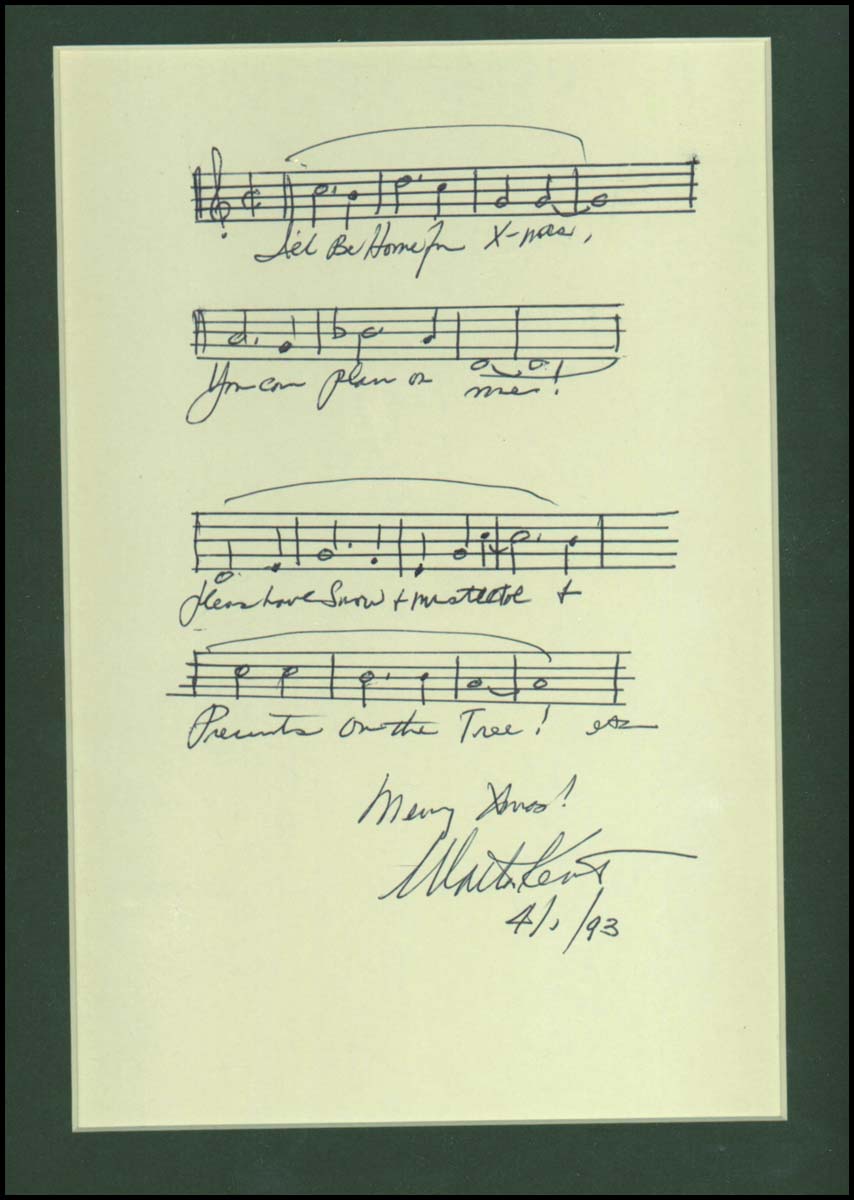 I'll Be Home For X-mas,
You can plan on me!
Please have Snow + mistletoe +
Presents on the Tree! etc
Merry Xmas!
Walter Kent
4/1/93